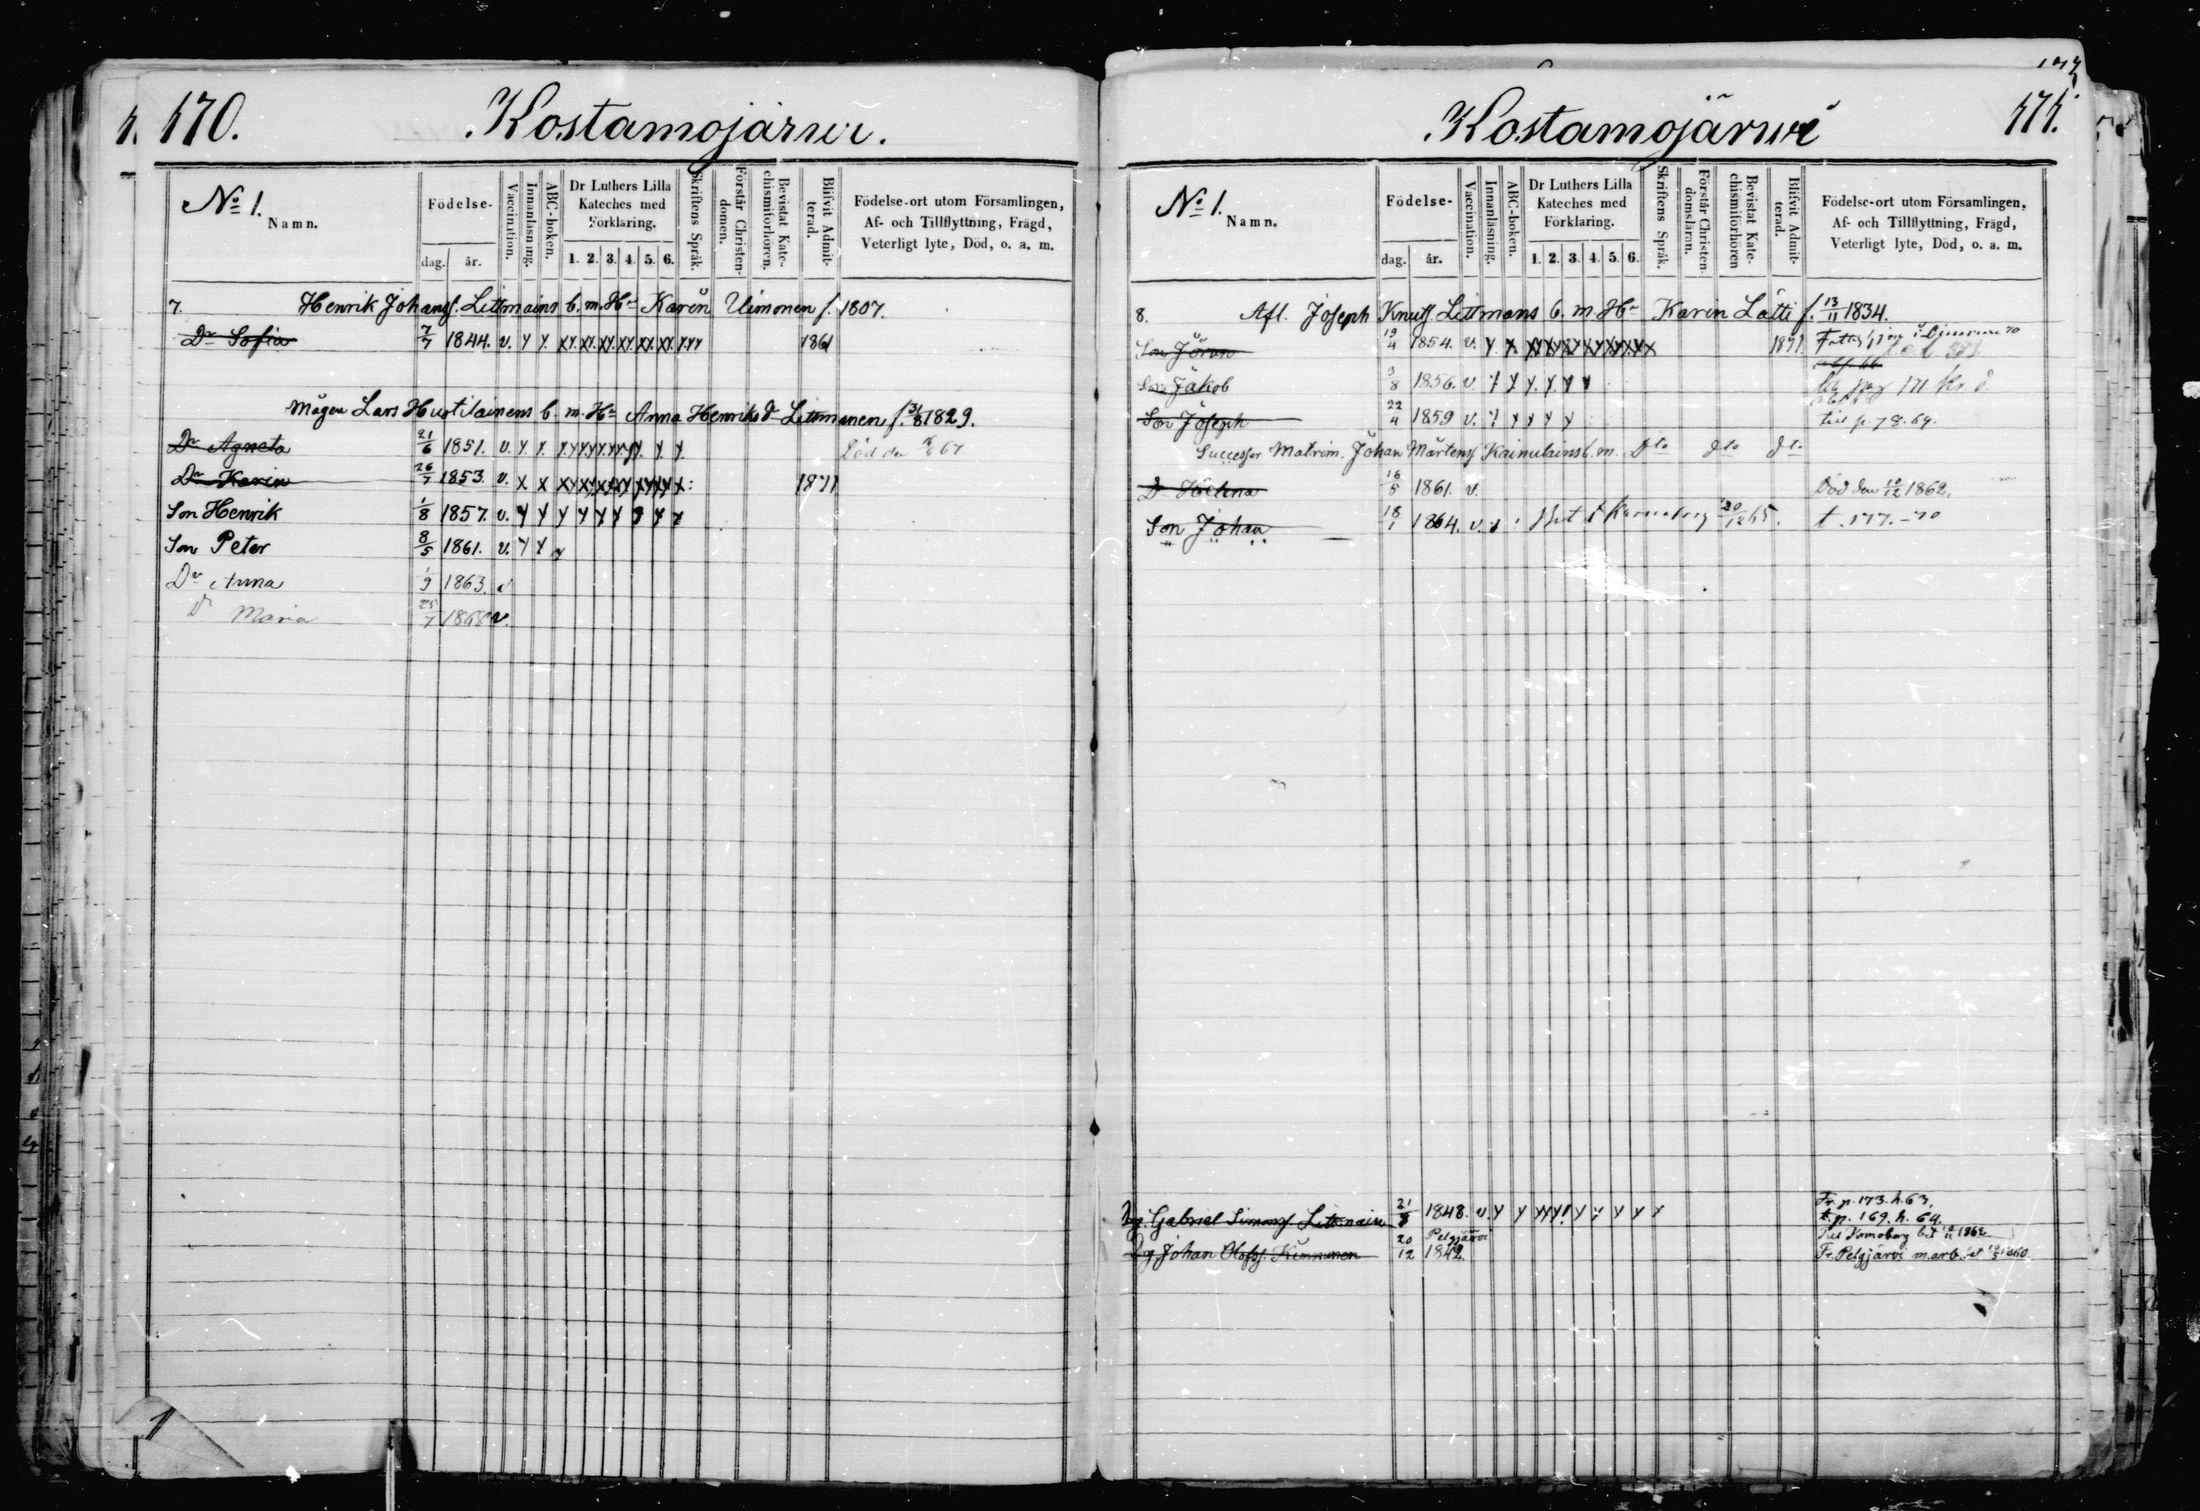 170. Kostamojärwi.
No 1.
Namn.
Födelse-
dag. år.
Vaccination.
Innanläsning.
ABC-boken.
Dr Luthers Lilla Kateches med Förklaring.
1. 2. 3. 4. 5. 6.
Skriftens Språk.
Förstår Christen-domen.
Bevistat Kate-chismiförhören.
Blifvit Admit-terad.
Födelse-ort utom Församlingen, Af- och Tillflyttning, Frägd, Veterligt lyte, Död, o. a. m.
7. Henrik Johansf. Littmains b. m. Hu Karin Uimonen f. 1807.
Dr Sofia 7/7 1844. v. 1861
Mågen Lars Huotilainens b. m. Hu Anna Henriksd Littmanen f. 31/8 1829.
Dr Agneta 21/6 1851. v. Död den 67
Dr Karin 26/7 1853. v. 1871
Son Henrik 1/8 1857. v.
Son Peter 8/5 1861. v.
Dr Anna 1/9 1863. v
Dr Maria 25/7 1868 v.
Kostamojärwi 171.
No 1.
Namn.
Födelse-
dag. år.
Vaccination.
Innanläsning.
ABC-boken.
Dr Luthers Lilla Kateches med Förklaring.
1. 2. 3. 4. 5. 6.
Skriftens Språk.
Förstår Christen-domsläran.
Bevistat Kate-chismiförhören
Blifvit Admit-terad.
Födelse-ort utom Församlingen, Af- och Tillflyttning, Frägd, Veterligt lyte, Död, o. a. m.
8. Afl. Joseph Knutsf. Littmans b. m. Hu Karin Lätti f. 13/11 1834.
Son Jöran 19/4 1854. v. 1871
Son Jakob 3/8 1856. v. 171
Son Joseph 22/4 1859 v. till p. 78. 69.
Successor Matrim. Johan Mårtensf Kainulains b. m. Dto dto dto
Dr Helena 16/5 1861. v. Död den 10/12 1862.
Son Johan 18/1 1864. v. 20/12 65. t. 177. - 70
Dg. Gabriel Simonsf. Littmain 21/8 1848. v. Fr. p. 173. h. 63.
t. p. 169. h. 64.
Dg Johan Olofsf. Kinnunen 20/12 Pelgjärvi 1842. 1862
Fr. Pelgjärvi m. arb. bet 1860